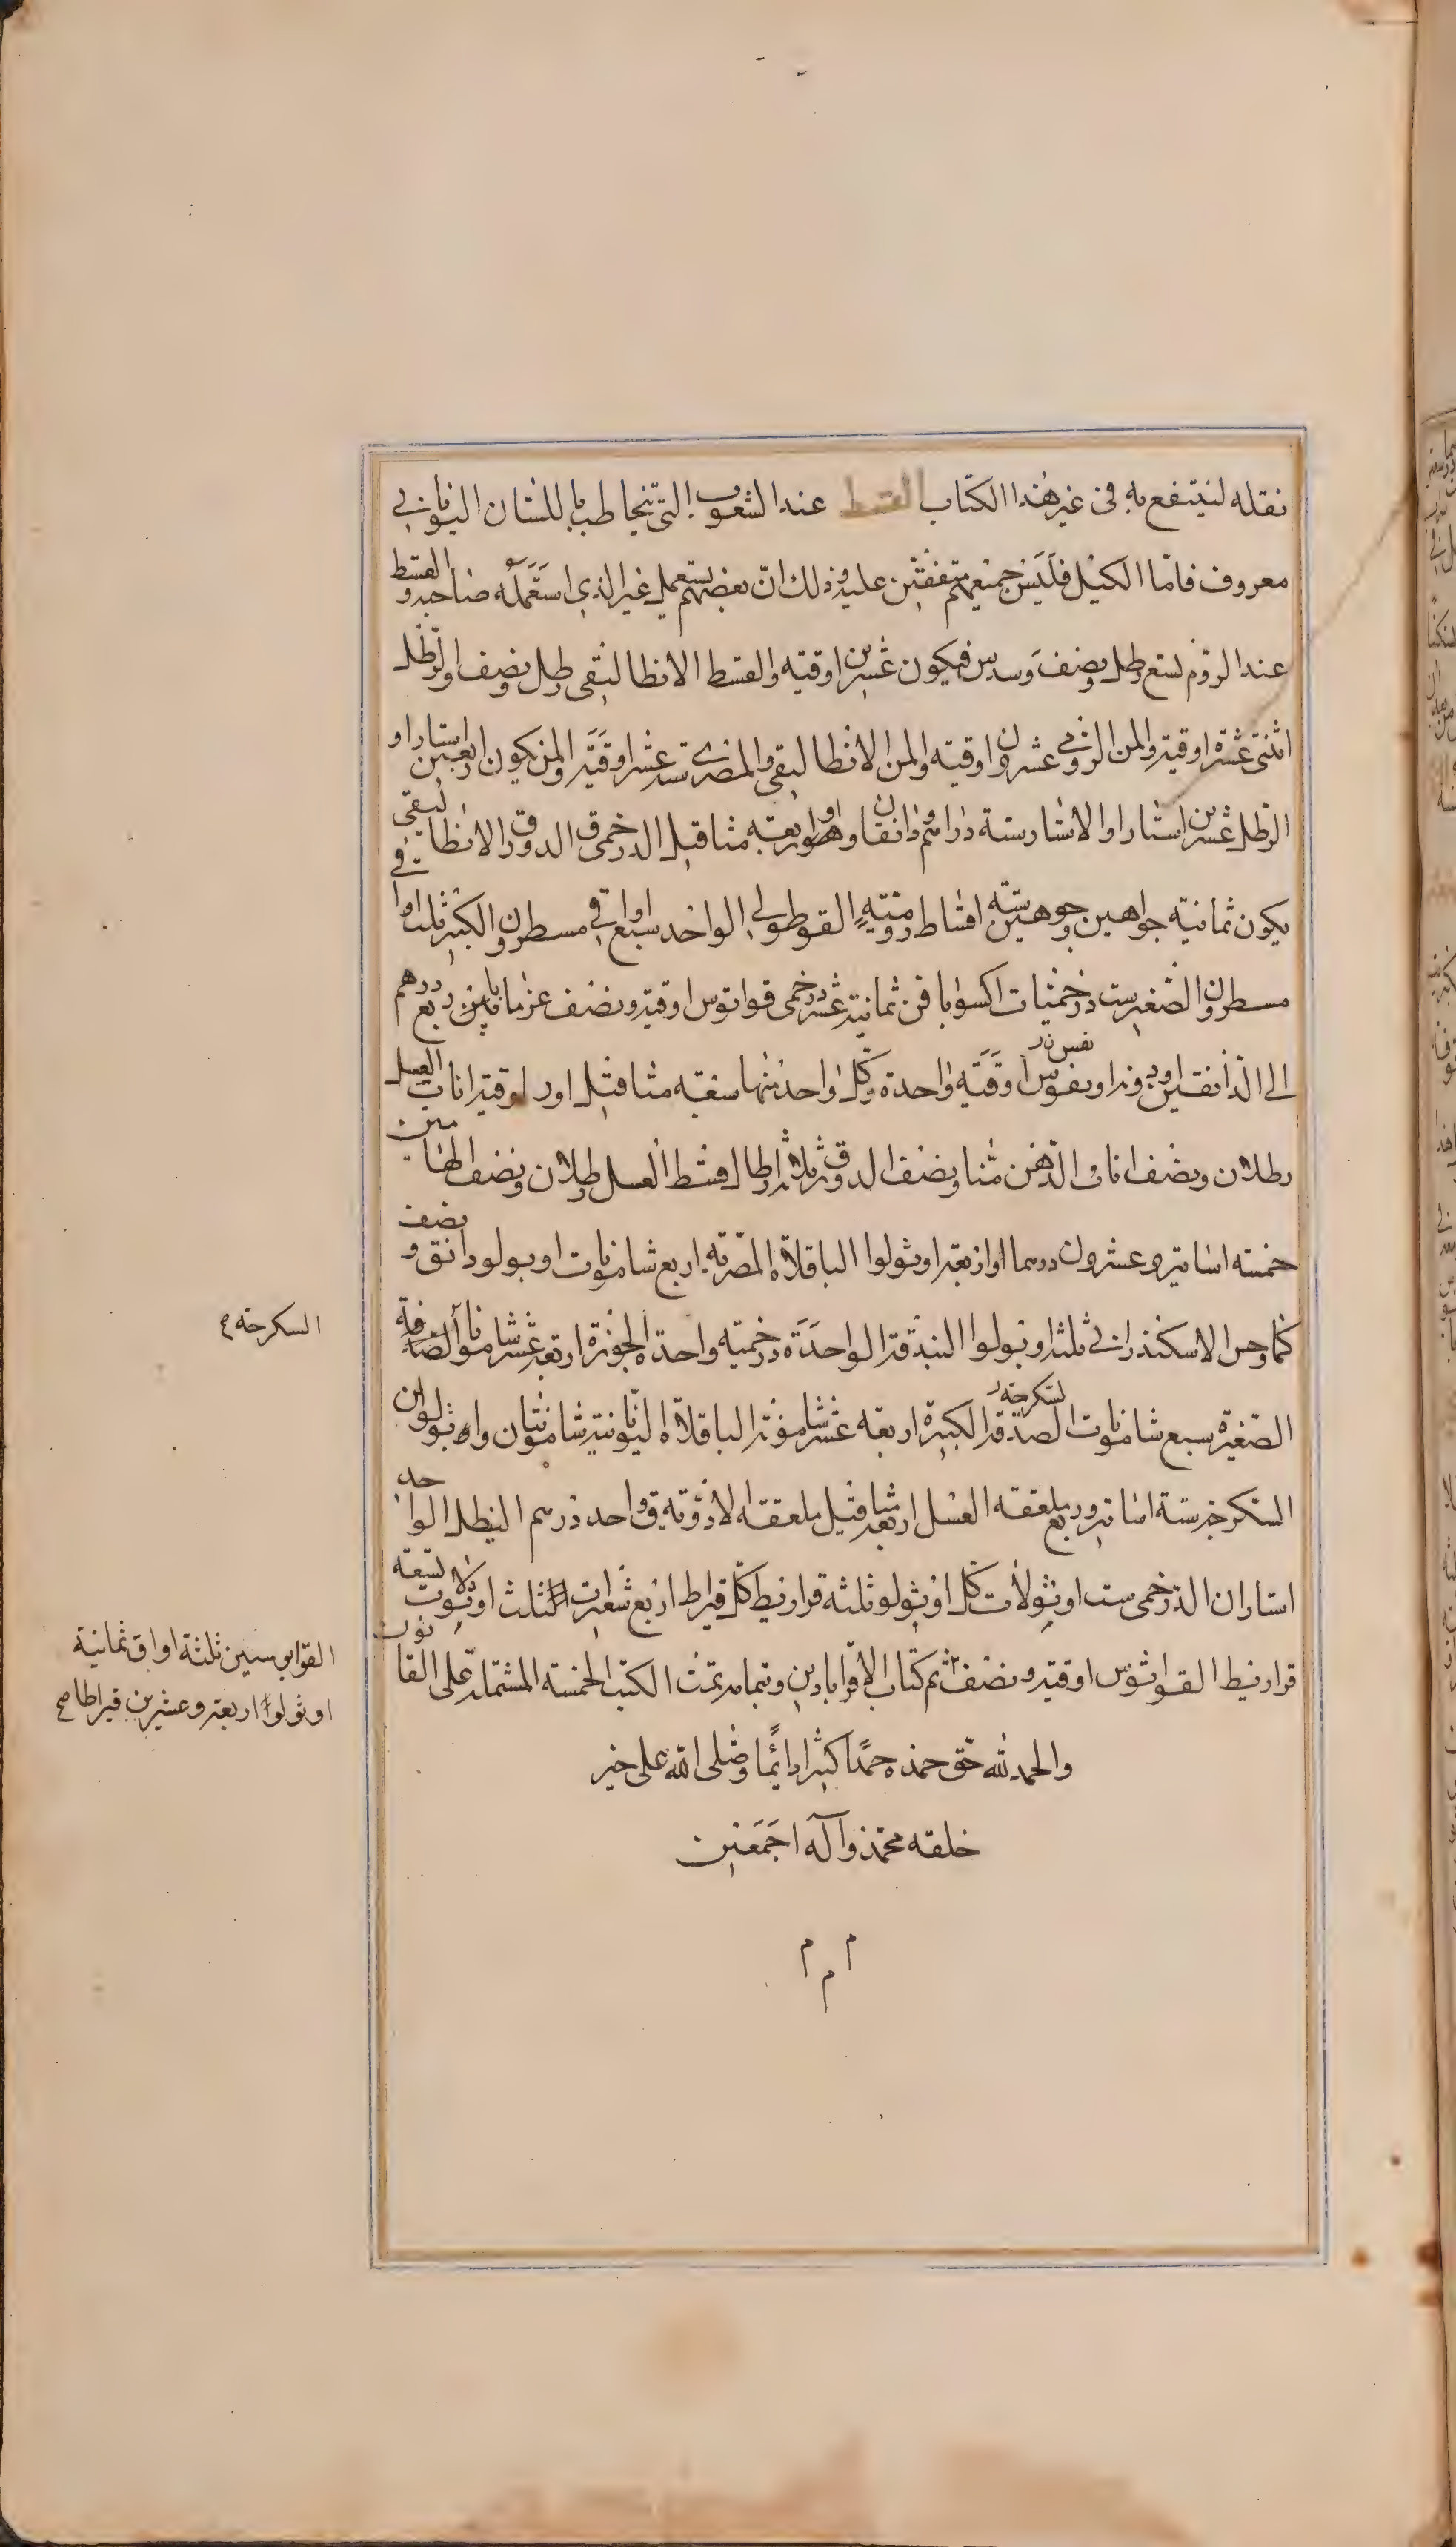 نقله لينتفع به في غير هذا الكتاب القسط عند الشعوب التي تخاطب باللسان اليوناني
معروف فاما الكيل فليس جميعهم متفقين عليه وذلك ان بعضهم يستعمل غير الذي استعمله صاحبه والقسط
عند الروم تسع رطل ونصف وسدس فيكون عشرين اوقية والقسط الانطاليقي رطل ونصف والرطل
اثنتي عشرة اوقية والمن الرومي عشرون اوقية والمن الانطاليقي والمصري ستة عشر اوقية والمن يكون اربعين استارا و
الرطل عشرين استارا والاستار ستة دراهم ودانقان وهو اربعة مثاقيل الدرخمي الدورق الانطاليقي
يكون ثمانية جواهين وجوهين ستة اقساط رومية القوطولي الواحد سبع اواقي مسطرون الكبير ثلث اواقي
مسطرون الصغير ست درخميات اكسوبافن ثمانية عشر درخمي قواثوس اوقية ونصف عزما ما بين ربع درهم
الى الدانقين اوقية واحدة وكل واحد منها سبعة مثاقيل اوقية اناب العسل
رطلان ونصف اناب الدهن منا ونصف الدورق ثلاثة ارطال قسط العسل رطلان ونصف
خمسة اساتير وعشرون درهما او اربعة اوثولوا الباقلاة المصرية اربع شامونات اوبولو دانق ونصف
الاسكندراني ثلثة اوبولوا البندقة الواحدة درخمية واحدة الجوزة اربعة عشر شامونا الصدفة
الصغيرة سبع شامونات الصدفة الكبيرة اربعة عشر شامونة الباقلاة اليونانية شامونتان واوثولوان
السكرجة ستة اساتير وربع ملعقة العسل اربعة مثاقيل ملعقة الادوية واحد درهم النيطل الواحد
استاران الدرخمي ست اوثولات كل اوثولو ثلثة قراريط كل قيراط اربع شعيرات الثلث اوثولات تسعة
قراريط القواثوس اوقية ونصف تم كتاب الاقراباذين وتمامه تمت الكتب الخمسة المشتملة على القانون
والحمد لله حق حمده حمدا كثيرا دائما وصلى الله على خير
خلقه محمد وآله اجمعين
م م م
السكرجة
القوابوسين ثلثة اواق ثمانية
اوثولوا اربعة وعشرين قيراطا صح